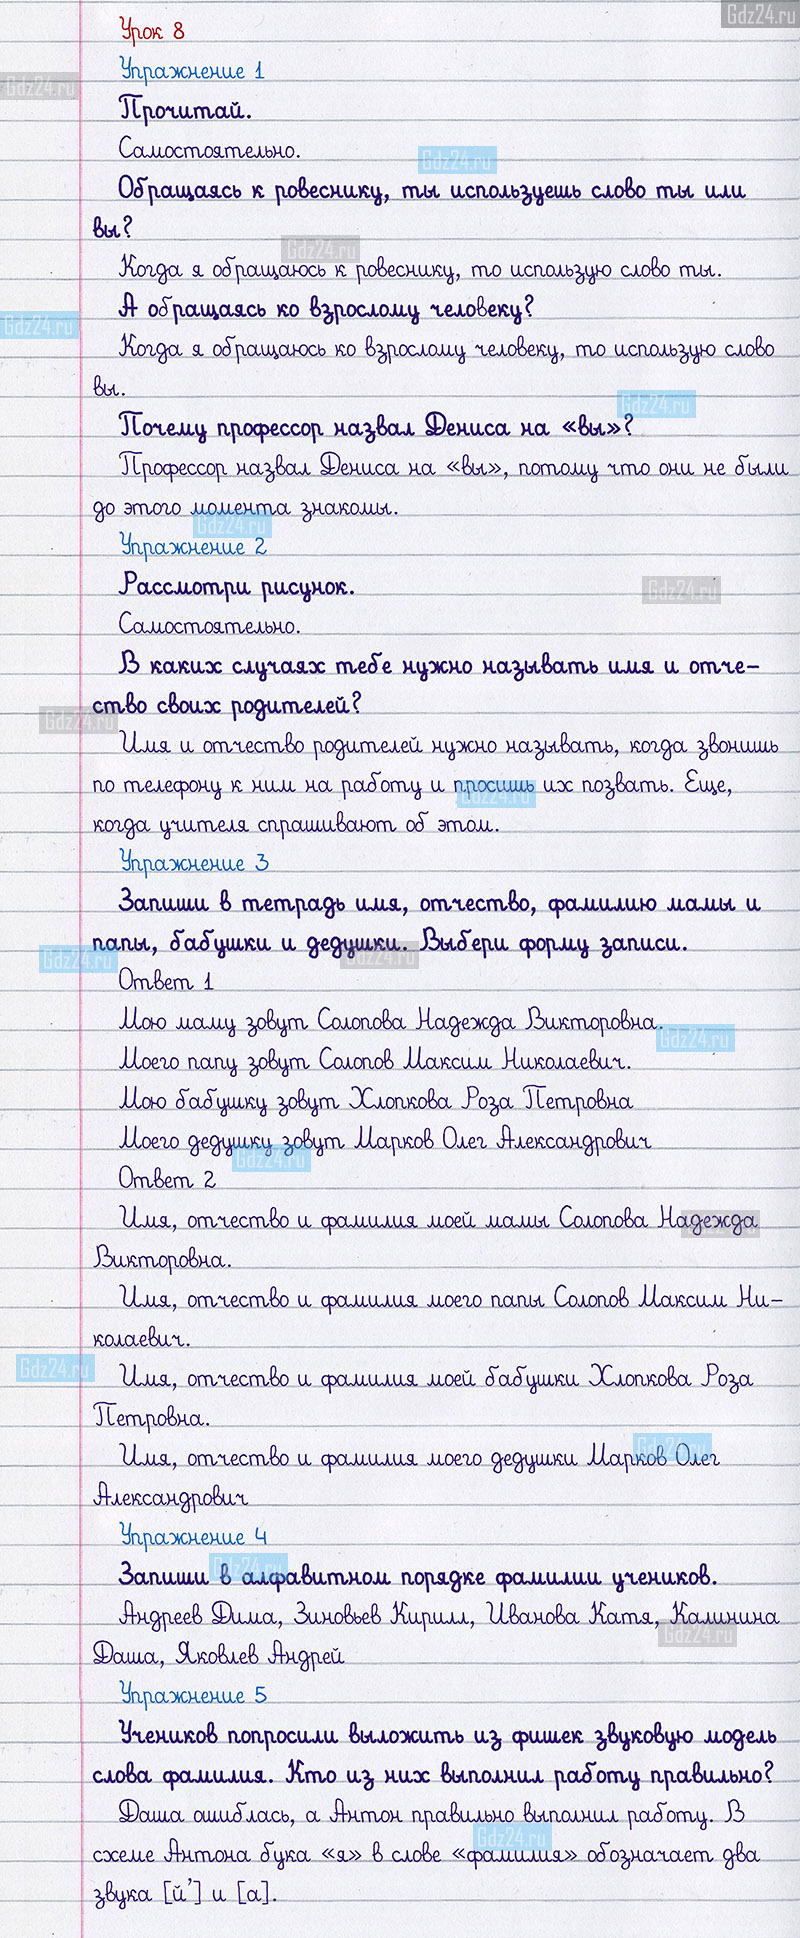 Gdz24.ru
Урок 8
Упражнение 1
Gdz24.ru
Прочитай.
Самостоятельно.
Gdz24.ru
Обращаясь к ровеснику, ты используешь слово ты или
вы?
Gdz24.ru
Когда я обращаюсь к ровеснику, то использую слово ты.
А обращаясь ко взрослому человеку?
Gdz24.ru
Когда я обращаюсь ко взрослому человеку, то использую слово
вы.
Gdz24.ru
Почему профессор назвал Дениса на «вы»?
Профессор назвал Дениса на «вы», потому что они не были
до этого момента знакомы.
Gdz24.ru
Упражнение 2
Рассмотри рисунок.
Gdz24.ru
Самостоятельно.
В каких случаях тебе нужно называть имя и отче-
ство своих родителей?
Gdz24.ru
Имя и отчество родителей нужно называть, когда звонишь
по телефону к ним на работу и просишь их позвать. Еще,
Gdz24.ru
когда учителя спрашивают об этом.
Упражнение 3
Запиши в тетрадь имя, отчество, фамилию мамы и
папы, бабушки и дедушки. Выбери форму записи.
Gdz24.ru
Gdz24.ru
Ответ 1
Мою маму зовут Солопова Надежда Викторовна.
Gdz24.ru
Моего папу зовут Солопов Максим Николаевич.
Мою бабушку зовут Хлопкова Роза Петровна
Моего дедушку зовут Марков Олег Александрович
Gdz24.ru
Ответ 2
Имя, отчество и фамилия моей мамы Солопова Надежда
Gdz24.ru
Викторовна.
Имя, отчество и фамилия моего папы Солопов Максим Ни-
колаевич.
Gdz24.ru
Имя, отчество и фамилия моей бабушки Хлопкова Роза
Петровна.
Gdz24.ru
Имя, отчество и фамилия моего дедушки Марков Олег
Александрович
Упражнение 4
Gdz24.ru
Запиши в алфавитном порядке фамилии учеников.
Андреев Дима, Зиновьев Кирилл, Иванова Катя, Калинина
Gdz24.ru
Даша, Яковлев Андрей
Упражнение 5
Учеников попросили выложить из фишек звуковую модель
слова фамилия. Кто из них выполнил работу правильно?
Даша ошиблась, а Антон правильно выполнил работу. В
Gdz24.ru
схеме Антона бука «я» в слове «фамилия» обозначает два
звука [й'] и [а].